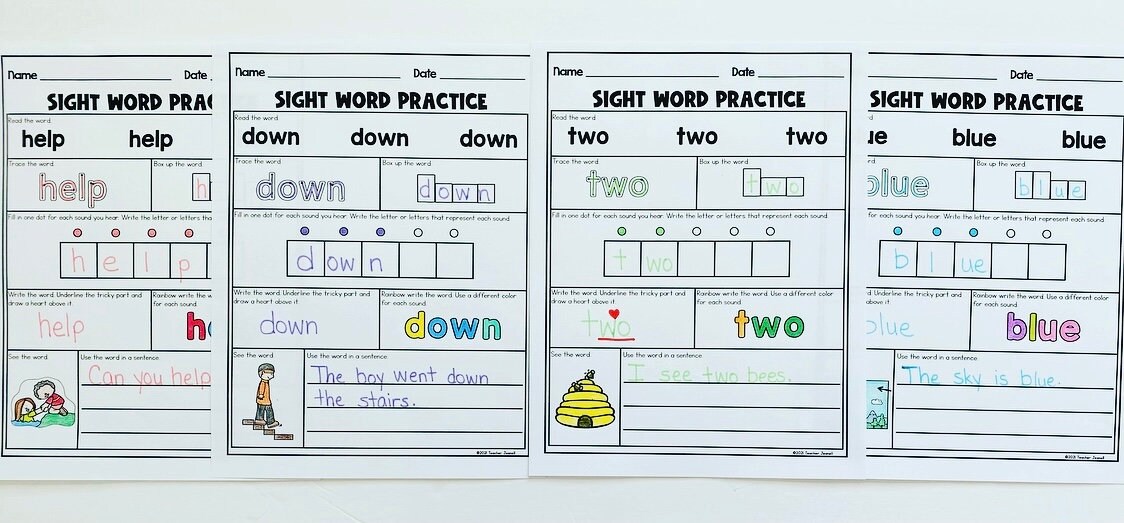 Name Date
SIGHT WORD PRAC
Read the word.
help help
Trace the word. Box up the word.
help h
Fill in one dot for each sound you hear. Write the letter or letters tha
h e l p
Write the word. Underline the tricky part and draw a heart above it.
Rainbow write the w
for each sound.
help he
See the word. Use the word in a sentence.
Can you help
Name Date
SIGHT WORD PRACTICE
Read the word.
down down down
Trace the word. Box up the word.
down down
Fill in one dot for each sound you hear. Write the letter or letters that represent each sound
d ow n
Write the word. Underline the tricky part and draw a heart above it.
Rainbow write the word. Use a different color for each sound.
down down
See the word. Use the word in a sentence.
The boy went down
the stairs.
Name Date
SIGHT WORD PRACTICE
Read the word.
two two two
Trace the word. Box up the word.
two two
Fill in one dot for each sound you hear. Write the letter or letters that represent each sound
t wo
Write the word. Underline the tricky part and draw a heart above it.
Rainbow write the word. Use a different color for each sound.
two two
See the word. Use the word in a sentence.
I see two bees.
©2021 Teacher Jewell
Date
SIGHT WORD PRACTICE
ue blue blue
Box up the word.
blue blue
for each sound you hear. Write the letter or letters that represent each sound
b l ue
d. Underline the tricky part and
above it.
Rainbow write the word. Use a different color for each sound.
blue blue
Use the word in a sentence.
The sky is blue.
©2021 Teacher Jewell